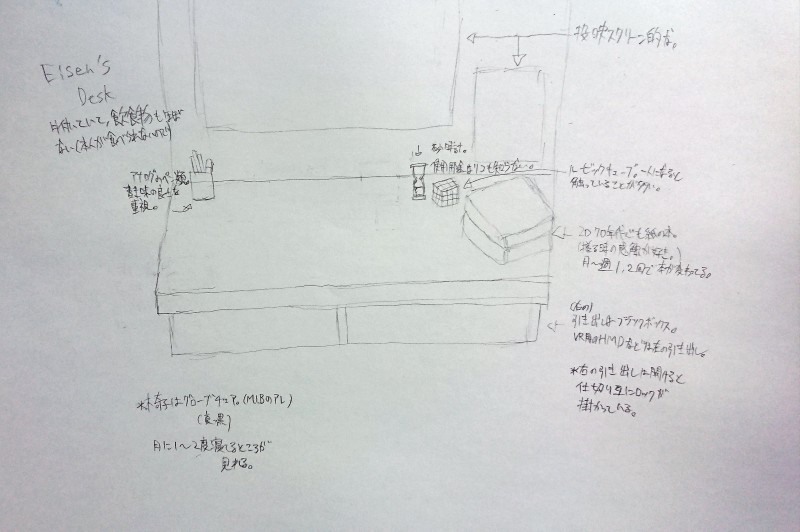 Elsen's
Desk
片付いていて、飲食物もほぼ
ない(本人が食べられないので)
投映スクリーン的な。
砂時計。
アナログなペン類。
書き味の良さを
重視。
ルービックキューブ。一人になると
触っていることが多い。
2070年代でも紙の本。
月〜週1,2回で本が変わってる。
(右の)
引き出しはブラックボックス。
VR用のHMDなどは左の引き出し。
*右の引き出しは開けると
仕切り毎にロックが
掛かっている。
*椅子はグローブチェア(MIBのアレ)
(真黒)
月に1〜2度寝てるところが
見れる。